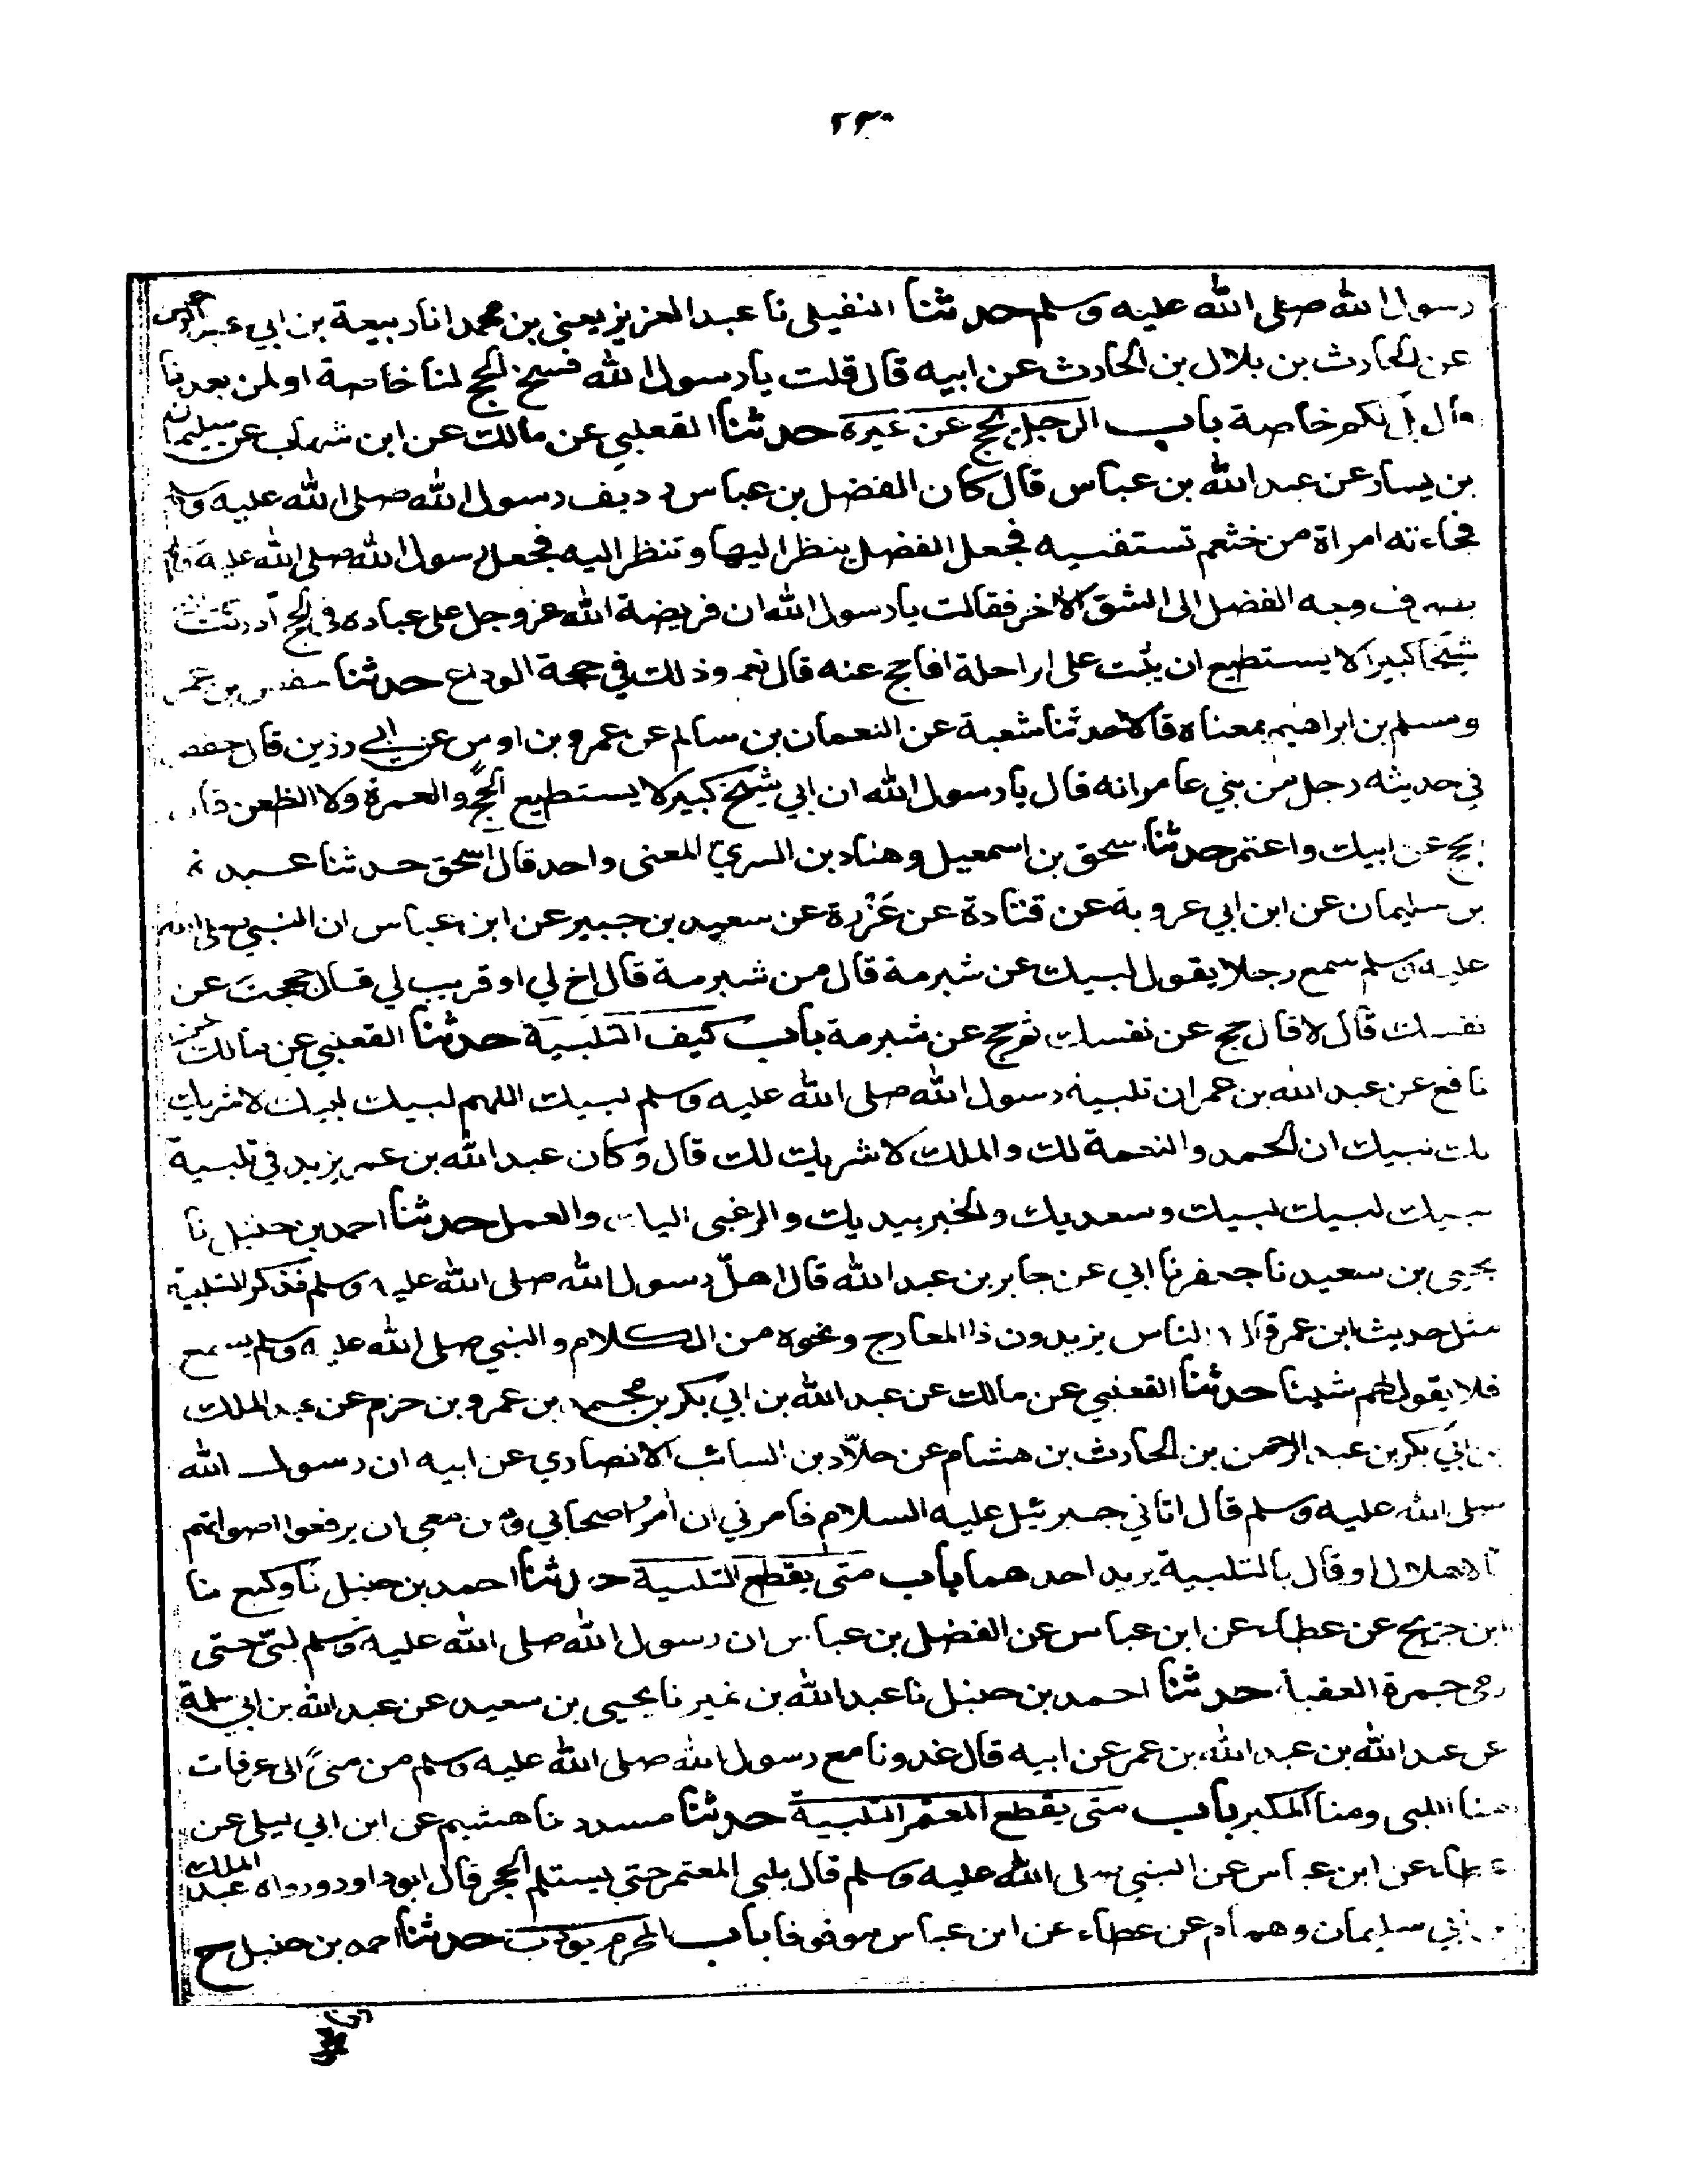 ٢٣٠
رسول الله صلى الله عليه وسلم حدثنا النفيلي نا عبد العزيز يعني بن محمد انا ربيعة بن ابي عبد الرحمن
عن الحارث بن بلال بن الحارث عن ابيه قال قلت يا رسول الله فسخ الحج لنا خاصة او لمن بعدنا
قال بل لكم خاصة باب الرجل يحج عن غيره حدثنا القعنبي عن مالك عن ابن شهاب عن سليمان
بن يسار عن عبد الله بن عباس قال كان الفضل بن عباس رديف رسول الله صلى الله عليه وسلم
فجاءته امراة من خثعم تستفتيه فجعل الفضل ينظر اليها وتنظر اليه فجعل رسول الله صلى الله عليه وسلم
يصرف وجه الفضل الى الشق الاخر فقالت يا رسول الله ان فريضة الله عز وجل على عباده في الحج ادركت
شيخا كبيرا لا يستطيع ان يثبت على الراحلة افاحج عنه قال نعم وذلك في حجة الوداع حدثنا حفص بن عمر
ومسلم بن ابراهيم بمعناه قالا حدثنا شعبة عن النعمان بن سالم عن عمرو بن اوس عن ابي رزين قال حفص
في حديثه رجل من بني عامر انه قال يا رسول الله ان ابي شيخ كبير لا يستطيع الحج والعمرة ولا الظعن قال
احجج عن ابيك واعتمر حدثنا اسحق بن اسمعيل وهناد بن السري المعنى واحد قال اسحق حدثنا عبدة
بن سليمان عن ابن ابي عروبة عن قتادة عن عَزْرة عن سعيد بن جبير عن ابن عباس ان النبي صلى الله
عليه وسلم سمع رجلا يقول لبيك عن شبرمة قال من شبرمة قال اخ لي او قريب لي قال حججتَ عن
نفسك قال لا قال حج عن نفسك ثم حج عن شبرمة باب كيف التلبية حدثنا القعنبي عن مالك عن
نافع عن عبد الله بن عمر ان تلبية رسول الله صلى الله عليه وسلم لبيك اللهم لبيك لبيك لا شريك
لك لبيك ان الحمد والنعمة لك والملك لا شريك لك قال وكان عبد الله بن عمر يزيد في تلبيية
لبيك لبيك لبيك وسعديك والخير بيديك والرغبى اليك والعمل حدثنا احمد بن حنبل نا
يحيى بن سعيد نا جعفر نا ابي عن جابر بن عبد الله قال اهلّ رسول الله صلى الله عليه وسلم فذكر التلبية
مثل حديث ابن عمر قال والناس يزيدون ذا المعارج ونحوه من الكلام والنبي صلى الله عليه وسلم يسمع
فلا يقول لهم شيئا حدثنا القعنبي عن مالك عن عبد الله بن ابي بكر بن محمد بن عمرو بن حزم عن عبد الملك
بن ابي بكر بن عبد الرحمن بن الحارث بن هشام عن خلاّد بن السائب الانصاري عن ابيه ان رسول الله
صلى الله عليه وسلم قال اتاني جبرئيل عليه السلام فامرني ان امُر اصحابي ومن معي ان يرفعوا اصواتهم
بالاهلال او قال بالتلبية يريد احدهما باب متى يقطع التلبية حدثنا احمد بن حنبل نا وكيع نا
ابن جريج عن عطاء عن ابن عباس عن الفضل بن عباس ان رسول الله صلى الله عليه وسلم لبّى حتى
رمى جمرة العقبة حدثنا احمد بن حنبل نا عبد الله بن نمير نا يحيى بن سعيد عن عبد الله بن ابي سلمة
عن عبد الله بن عبد الله بن عمر عن ابيه قال غدونا مع رسول الله صلى الله عليه وسلم من منىً الى عرفات
منا الملبي ومنا المكبر باب متى يقطع المعتمر التلبية حدثنا مسدد نا هشيم عن ابن ابي ليلى عن
عطاء عن ابن عباس عن النبي صلى الله عليه وسلم قال يلبي المعتمر حتى يستلم الحجر قال ابو داود ورواه عبد الملك
بن ابي سليمان وهمام عن عطاء عن ابن عباس موقوفا باب المحرم يؤدب حدثنا احمد بن حنبل ح